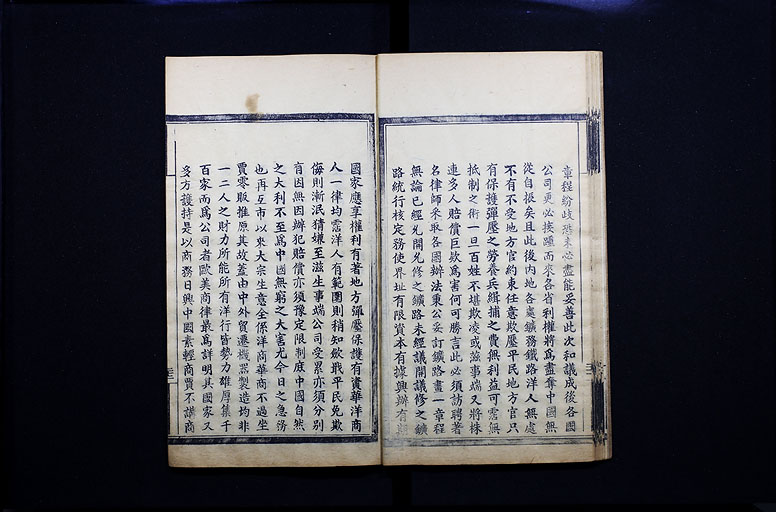 章程紛歧恐未必盡能妥善此次和議成後各國
公司更必接踵而來各省利權將爲盡奪中國無
從自振矣且此後內地各處鑛務鐵路洋人無處
不有不受地方官約束任意欺壓平民地方官只
有保護彈壓之勞養兵緝捕之費無利益可霑無
抵制之術一旦百姓不堪欺凌或滋事端又將株
連多人賠償巨欵爲害何可勝言此必須訪聘著
名律師采取各國辦法秉公妥訂鑛路畫一章程
無論已經允開允修之鑛路未經議開議修之鑛
路統行核定務使界址有限資本有據興辦有期
國家應享權利有著地方彈壓保護有資華洋商
人一律均霑洋人有範圍則稍知斂戢平民免欺
侮則漸泯猜嫌至滋生事端公司受累亦須分别
有因無因辦犯賠償亦須豫定限制庶中國自然
之大利不至爲中國無窮之大害尤今日之急務
也再互市以來大宗生意全係洋商華商不過坐
賈零販推原其故蓋由中外貿遷機器製造均非
一二人之財力所能所有洋行皆勢力雄厚集千
百家而爲公司者歐美商律最爲詳明其國家又
多方護持是以商務日興中國素輕商賈不講商